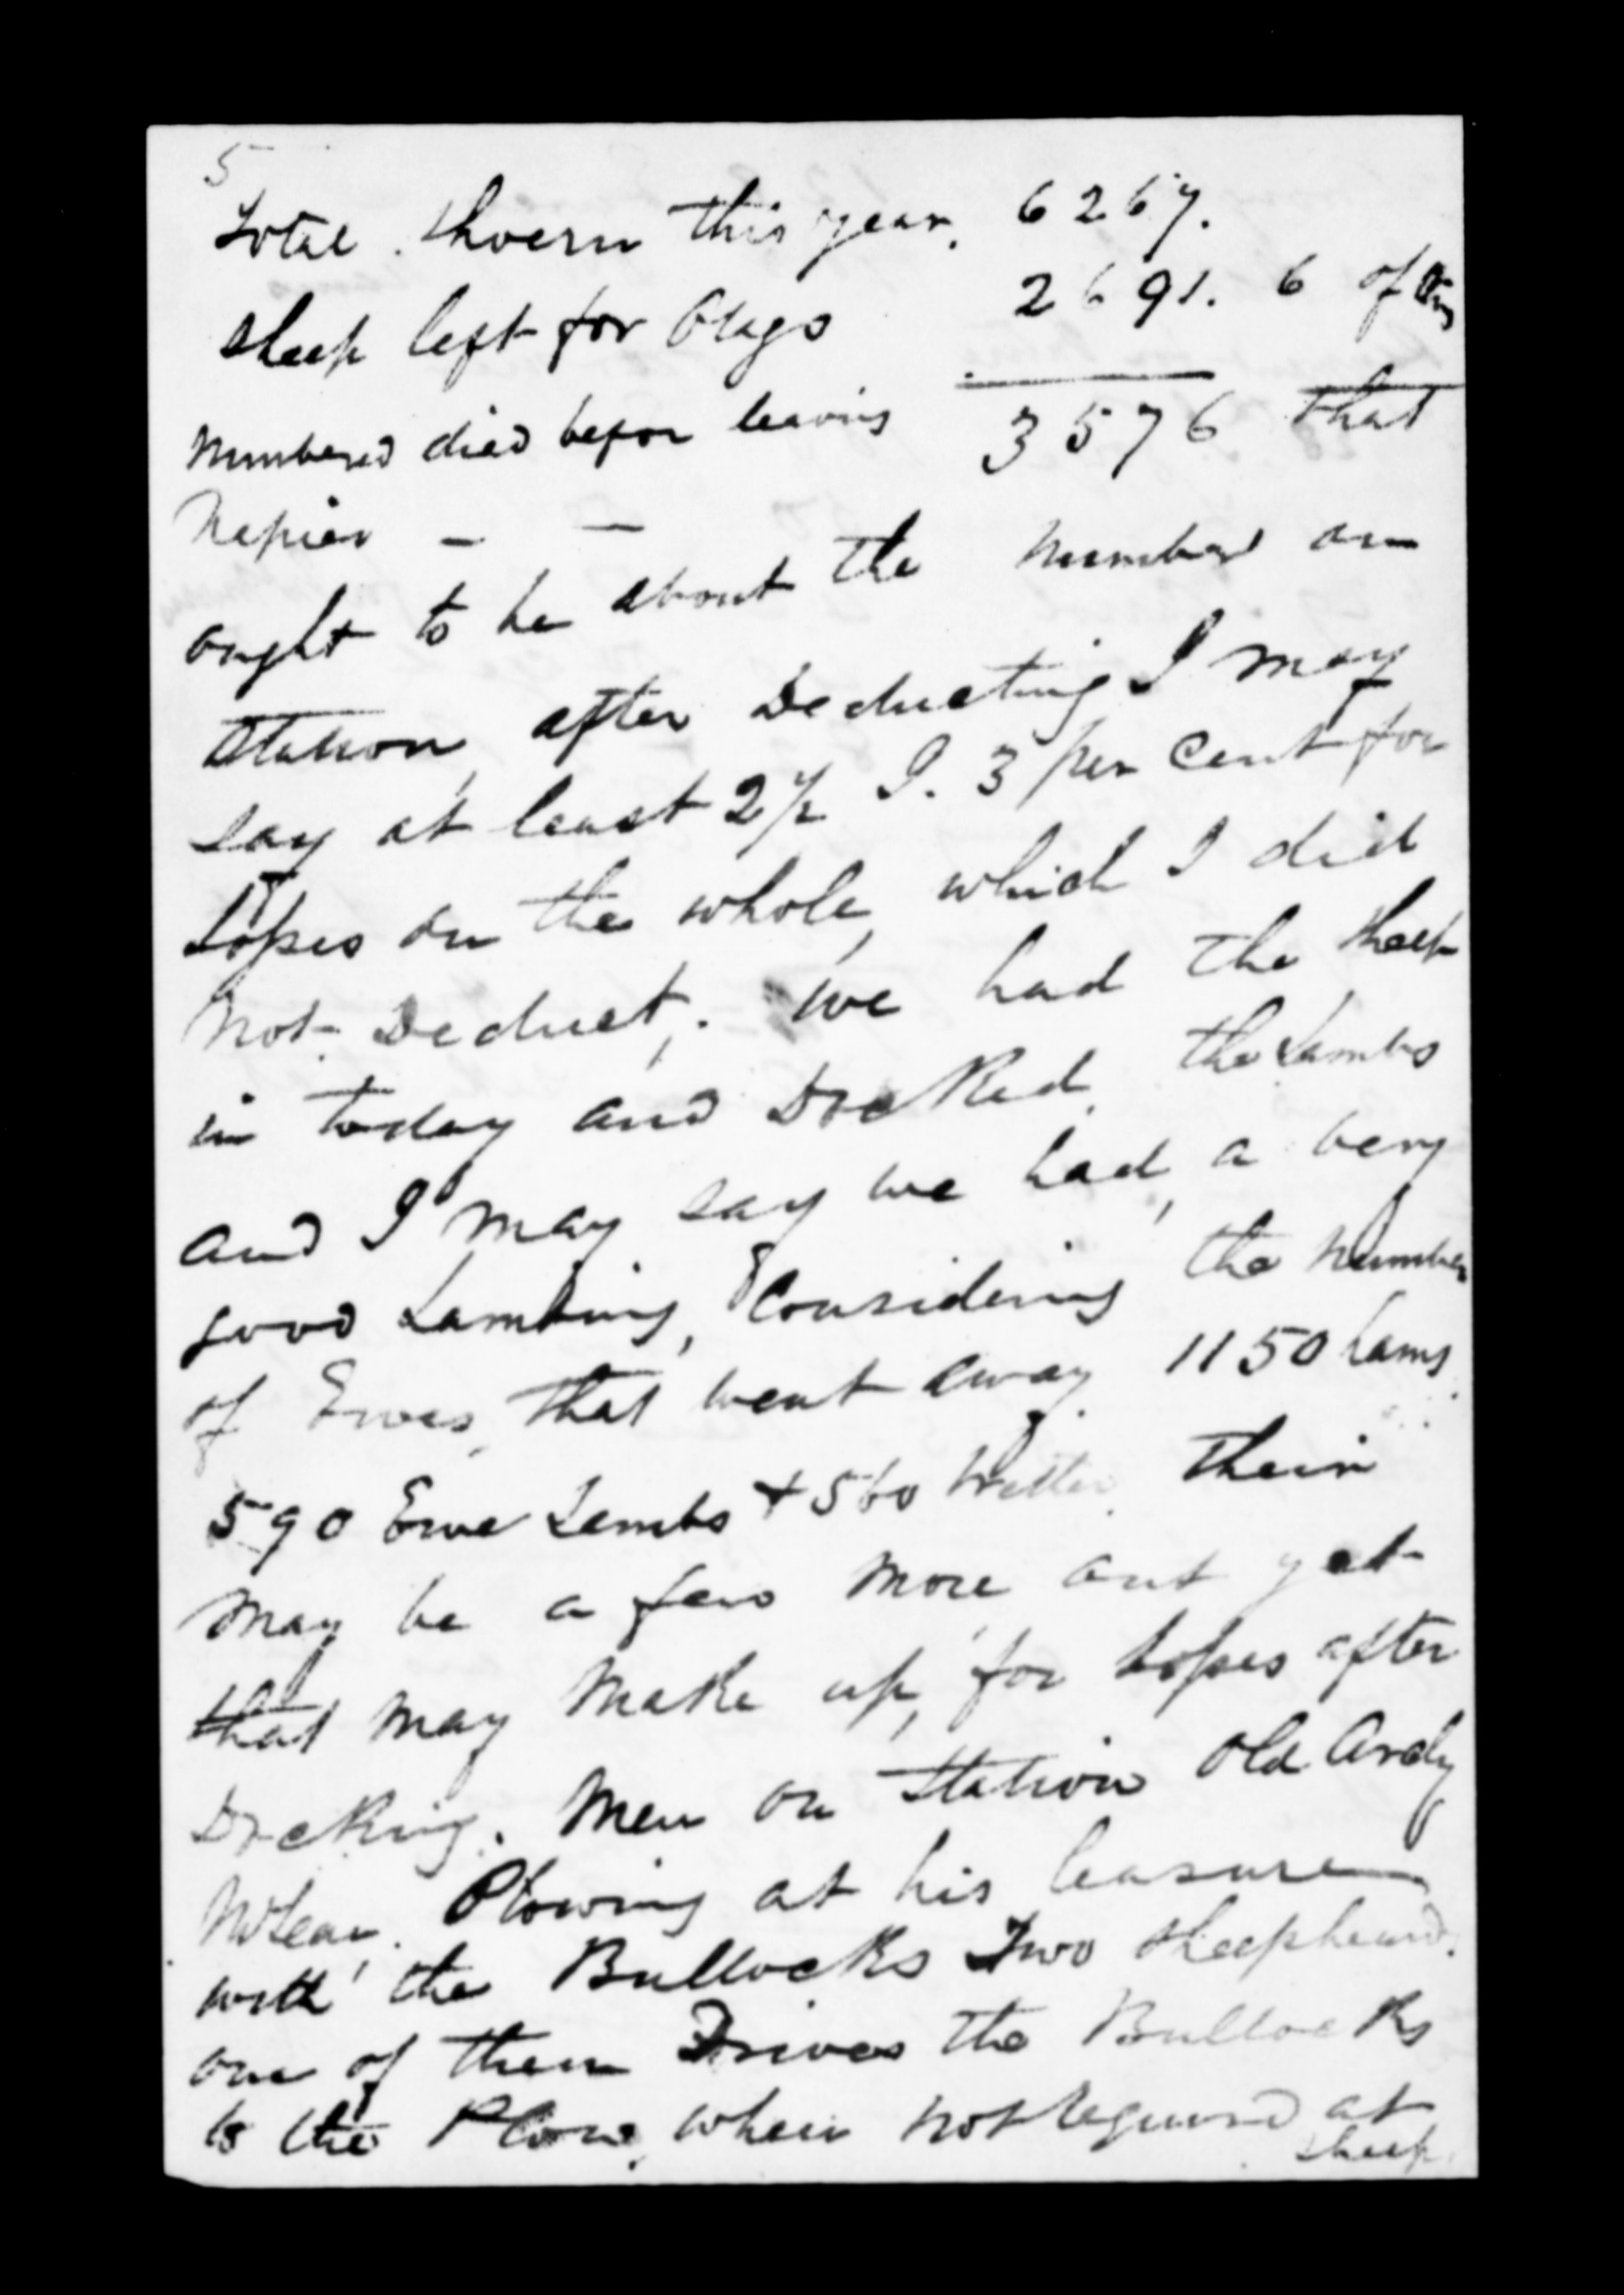 5
Total Shoern this year, 6267.
Sheep left for Otago 2691. 6 of this
Numbered died befor leaving 3576 that
Napier — —
ought to be about the Number on
Station, after Deducting I may
say at least 2½ I. 3 per cent for
Losses on the whole, which I did
Not Deduct. We had the Sheep
in today and Docked, the Lambs
and I may say we had, a very
good Lambing, Considering the Number
of Ewes, that went away 1150 Lams
590 Ewe Lambs + 560 Wether Their
May be a few More out yet
that May Make up, for Losses after
Docking. Men on Station Old Ardy
McLean. Plowing at his leasure
with the Bullocks Two Sheepheard.
one of them Drives the Bullocks
to the Plow, when not requird at
Sheep.